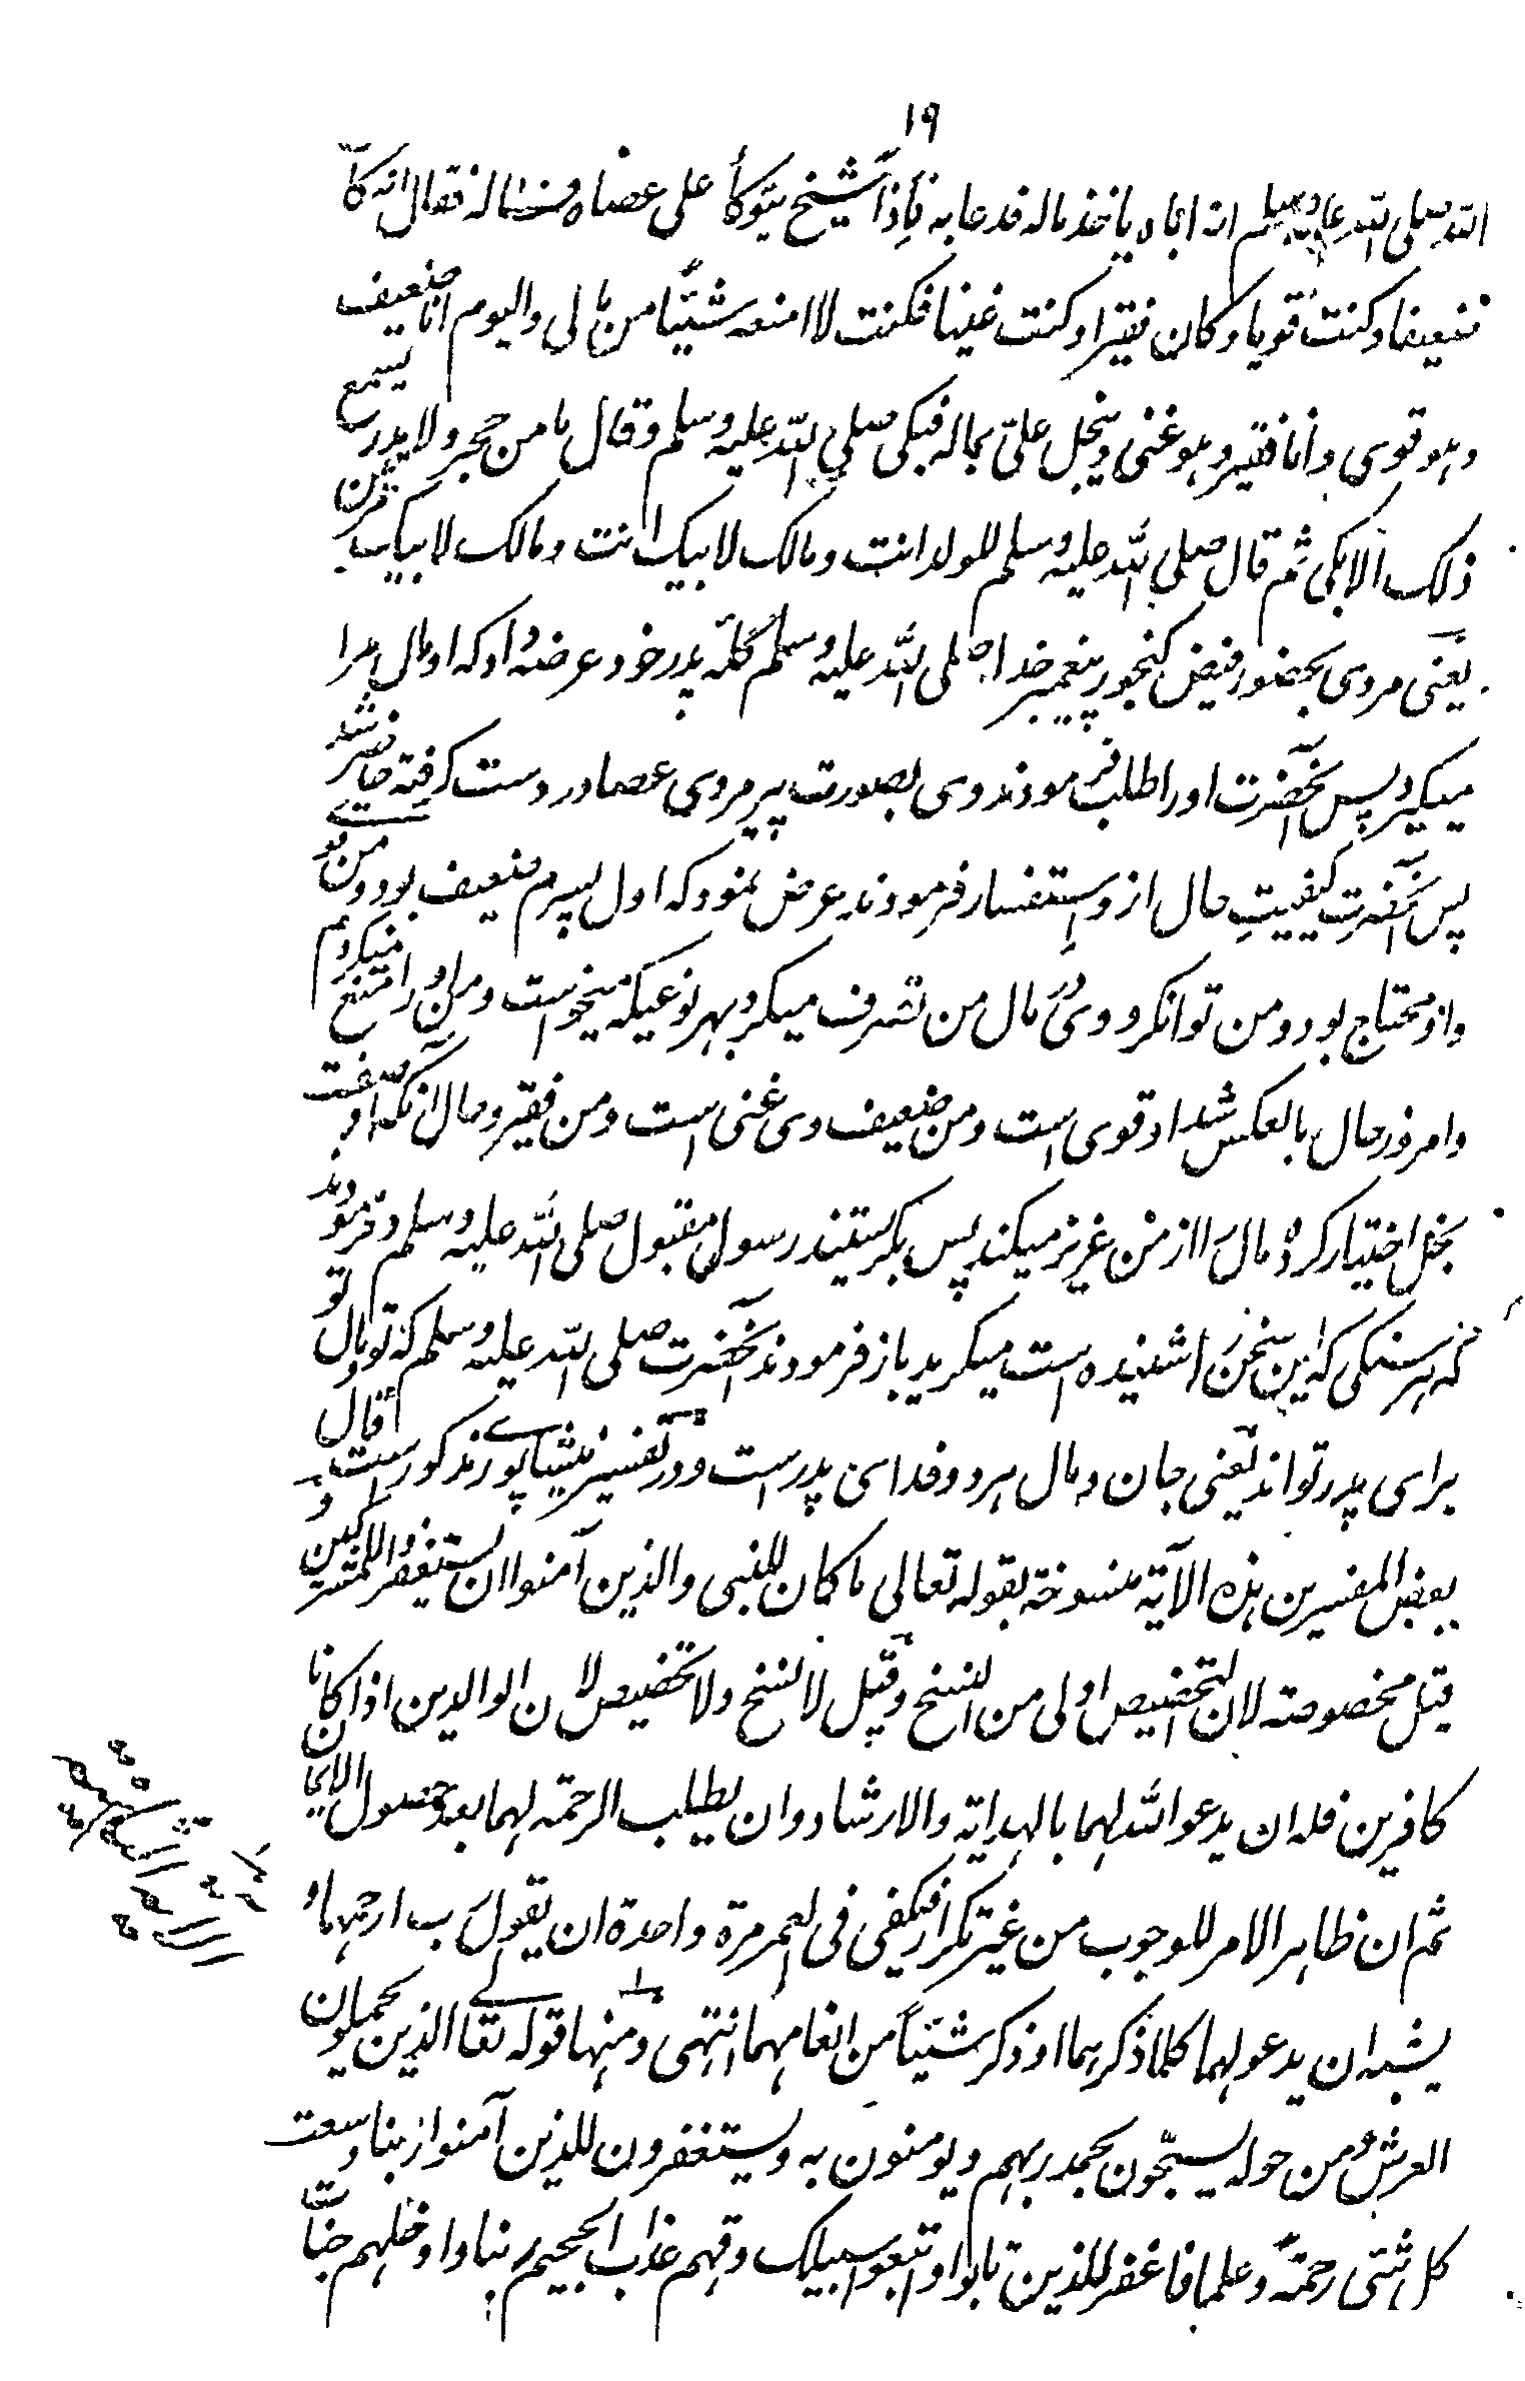 ۱۹
الله صلی الله علیه وسلم انه اباه یاخذ ماله فدعا به فَاِذَا شیخ یتوکأ علی عصاه فساله فقال انه کان
ضعیفا وکنت قویا وکان فقیرا وکنت غنیا فکنت لا امنعه شیئًا من مالی والیوم انا ضعیف
وهو قوی وانا فقیر وهو غنی ویبخل علیّ بماله فبکی صلی الله علیه وسلم وقال ما من حجر ولا مدر یسمع
ذلک الا بکی ثم قال صلی الله علیه وسلم للولد انت ومالک لابیک انت ومالک لابیک مرتین
یعنی مردی بحضور فیض گنجور پیغمبر خدا صلی الله علیه وسلم گله پدر خود عرضه داد که او مال مرا
میگیرد پس آنحضرت او را طلب فرمودند وی بصورت پیر مردی عصا در دست گرفته حاضر شد
پس آنحضرت کیفیتِ حال از وے استفسار فرمودند عرض نمود که اول پسرم ضعیف بود و من قوی
و او محتاج بود و من توانگر و وی در مال من تصرف میکرد بهر نوعیکه میخواست و من او را منع نمیکردم
و امروز حال بالعکس شد او قوی است و من ضعیف وی غنی است و من فقیر و حال آنکه او صفت
بخل اختیار کرده مال را از من عزیز میکند پس بگریستند رسول مقبول صلی الله علیه وسلم و فرمودند
که هر سنگی که این سخن را شنیده است میگرید باز فرمودند آنحضرت صلی الله علیه وسلم که تو و مال تو
برای پدر تو اند یعنی جان و مال هر دو فدای پدر است و در تفسیر نیشاپوری مذکور است قال
بعض المفسرین هذه الآیة منسوخة بقوله تعالی ما کان للنبی والذین آمنوا ان یستغفروا للمشرکین و
قیل مخصوصة لان التخصیص اولی من النسخ وقیل لا نسخ ولا تخصیص لان الوالدین اذا کانا
کافرین فله ان یدعو الله لهما بالهدایة والارشاد وان یطلب الرحمة لهما بعد حصول الایمان
ثم ان ظاهر الامر للوجوب من غیر تکرار فیکفی فی العمر مرة واحدة ان یقول رب ارحمهما و
یشبه ان یدعو لهما کلما ذکرهما او ذکر شیئاً من انعامهما انتهی ومنها قوله تعالی الذین یحملون
العرش ومن حوله یسبّحون بحمد ربهم ویومنون به ویستغفرون للذین آمنوا ربنا وسعت
کل شئی رحمة وعلما فاغفر للذین تابوا واتبعوا سبیلک وقهم عذاب الجحیم ربنا وادخلهم جنات